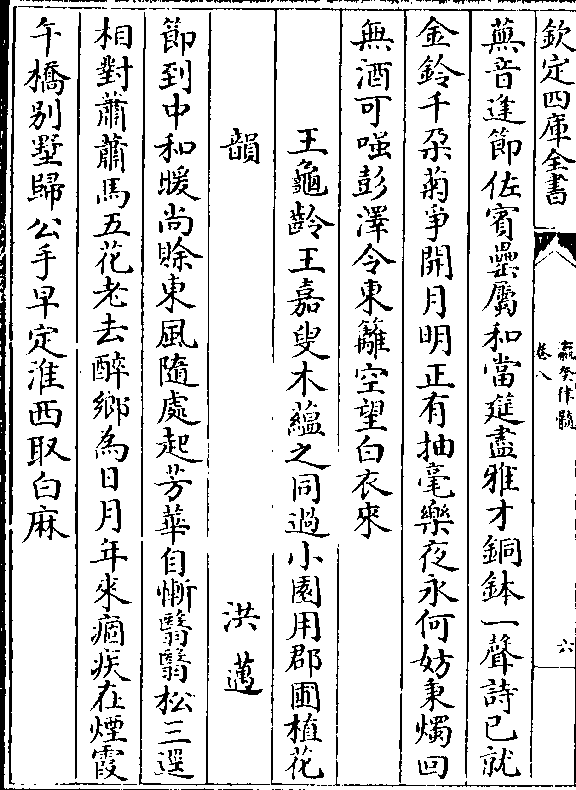 欽定四庫全書
瀛奎律髓
卷八
六
燕音逢節佐賓罍屬和當筵盡雅才銅鉢一聲詩已就
金鈴千朶菊爭開月明正有抽毫樂夜永何妨秉燭回
無酒可嗤彭澤令東籬空望白衣來
王龜齡王嘉叟木藴之同過小園用郡圃植花
韻
洪邁
節到中和暖尚賖東風隨處起芳華自慚翳翳松三逕
相對蕭蕭馬五花老去醉鄉為日月年來痼疾在煙霞
午橋别墅歸公手早定淮西取白麻